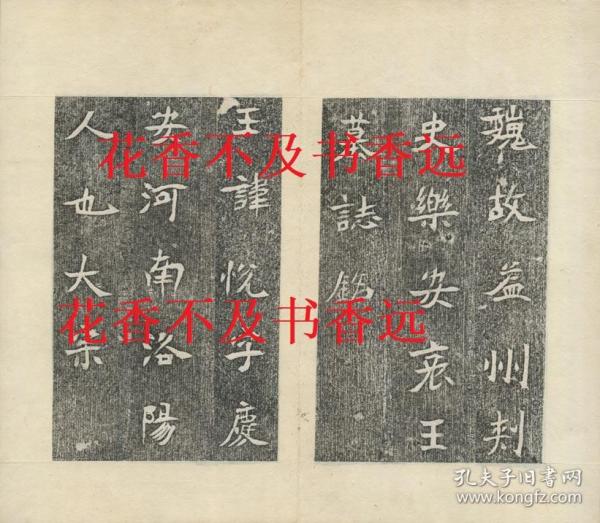 魏故益州刾
史樂安哀王
墓誌銘
王諱悦字慶
安河南洛陽
人也太宗
花香不及书香远
花香不及书香远
孔夫子旧书网
www.kongfz.com